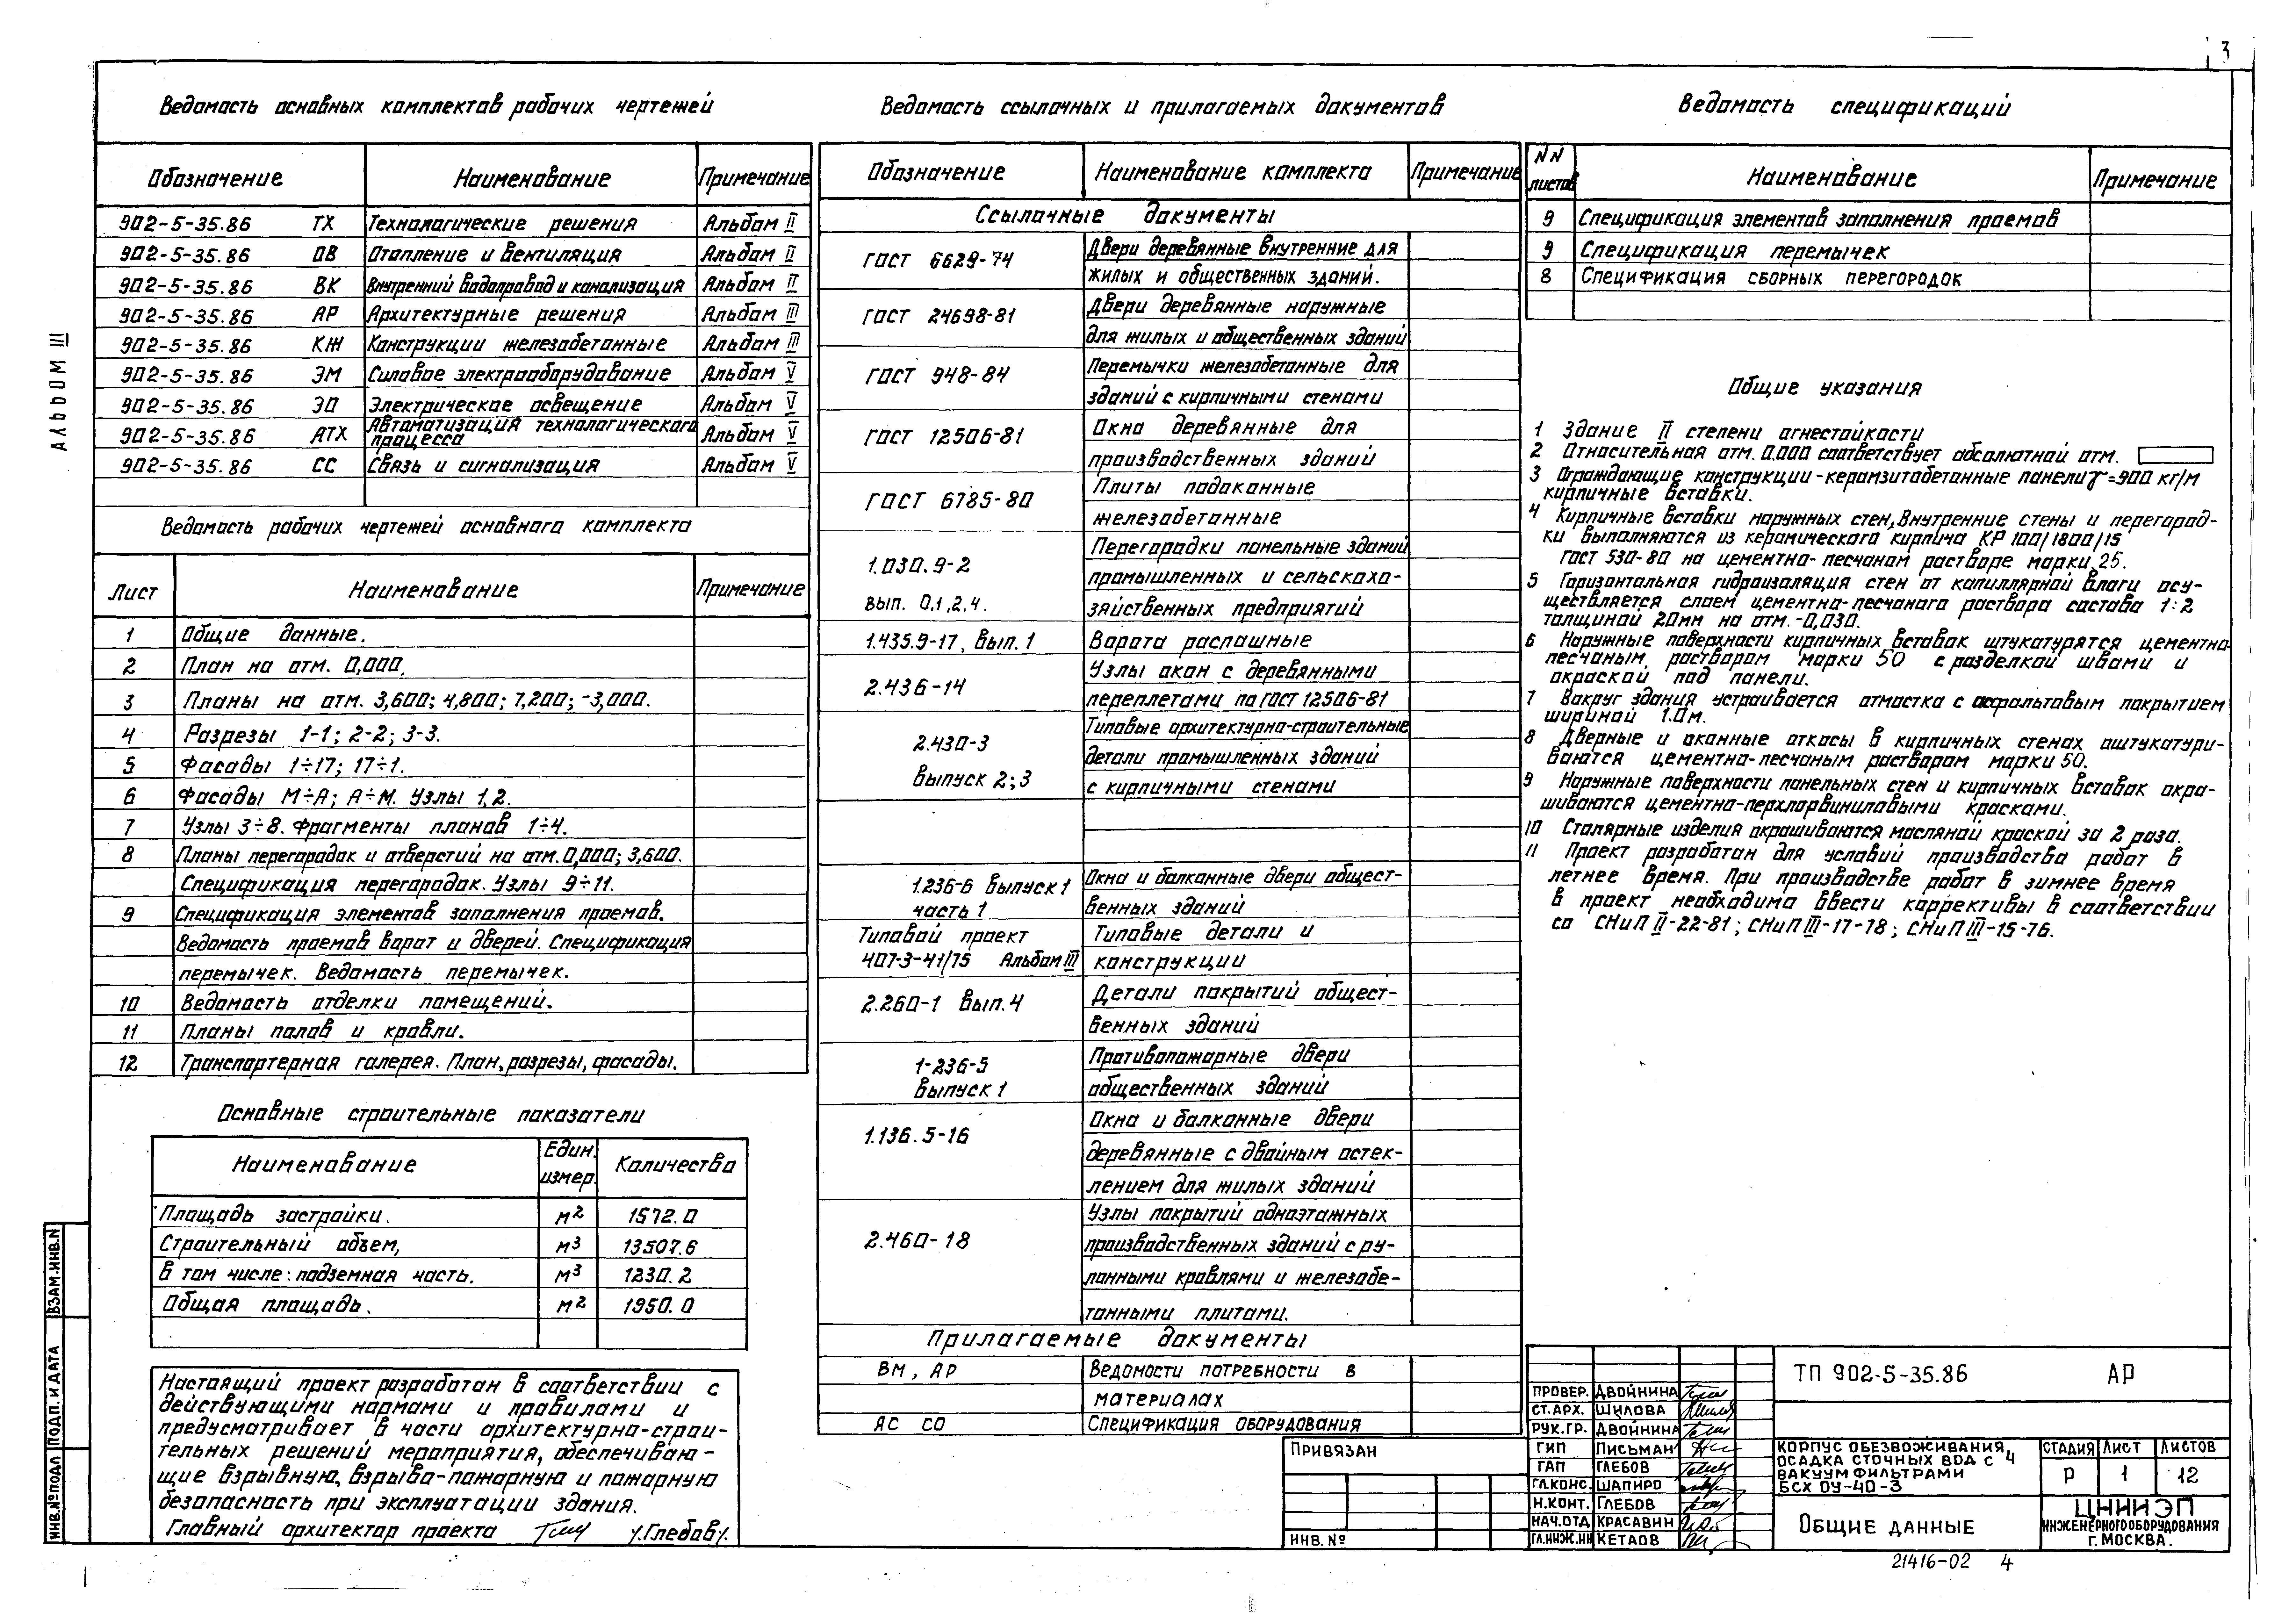 3
АЛЬБОМ III
Ведомость основных комплектов рабочих чертежей
Обозначение Наименование Примечание
902-5-35.86 ТХ Технологические решения Альбом II
902-5-35.86 ОВ Отопление и вентиляция Альбом II
902-5-35.86 ВК Внутренний водопровод и канализация Альбом II
902-5-35.86 АР Архитектурные решения Альбом III
902-5-35.86 КЖ Конструкции железобетонные Альбом III
902-5-35.86 ЭМ Силовое электрооборудование Альбом V
902-5-35.86 ЭО Электрическое освещение Альбом V
902-5-35.86 АТХ Автоматизация технологического процесса Альбом V
902-5-35.86 СС Связь и сигнализация Альбом V
Ведомость рабочих чертежей основного комплекта
Лист Наименование Примечание
1 Общие данные.
2 План на отм. 0,000.
3 Планы на отм. 3,600; 4,800; 7,200; -3,000.
4 Разрезы 1-1; 2-2; 3-3.
5 Фасады 1÷17; 17÷1.
6 Фасады М÷А; А÷М. Узлы 1,2.
7 Узлы 3÷8. Фрагменты планов 1÷4.
8 Планы перегородок и отверстий на отм. 0,000; 3,600.
Спецификация перегородок. Узлы 9÷11.
9 Спецификация элементов заполнения проемов.
Ведомость проемов ворот и дверей. Спецификация
перемычек. Ведомость перемычек.
10 Ведомость отделки помещений.
11 Планы полов и кровли.
12 Транспортерная галерея. План, разрезы, фасады.
Основные строительные показатели
Наименование Един. измер. Количество
Площадь застройки. м2 1572.0
Строительный объем, м3 13507.6
в том числе: подземная часть. м3 1230.2
Общая площадь. м2 1950.0
Настоящий проект разработан в соответствии с
действующими нормами и правилами и
предусматривает в части архитектурно-строи-
тельных решений мероприятия, обеспечиваю-
щие взрывную, взрыво-пожарную и пожарную
безопасность при эксплуатации здания.
Главный архитектор проекта /Глебов/.
Ведомость ссылочных и прилагаемых документов
Обозначение Наименование комплекта Примечание
Ссылочные документы
ГОСТ 6629-74 Двери деревянные внутренние для
жилых и общественных зданий.
ГОСТ 24698-81 Двери деревянные наружные
для жилых и общественных зданий
ГОСТ 948-84 Перемычки железобетонные для
зданий с кирпичными стенами
ГОСТ 12506-81 Окна деревянные для
производственных зданий
ГОСТ 6785-80 Плиты подоконные
железобетонные
1.030.9-2 Перегородки панельные зданий
промышленных и сельскохо-
вып. 0,1,2,4. зяйственных предприятий
1.435.9-17, вып. 1 Ворота распашные
2.436-14 Узлы окон с деревянными
переплетами по ГОСТ 12506-81
2.430-3 Типовые архитектурно-строительные
детали промышленных зданий
выпуск 2; 3 с кирпичными стенами
1.236-6 выпуск 1 Окна и балконные двери общест-
часть 1 венных зданий
Типовой проект Типовые детали и
407-3-41/75 Альбом III конструкции
2.260-1 вып. 4 Детали покрытий общест-
венных зданий
1-236-5 Противопожарные двери
выпуск 1 общественных зданий
1.136.5-16 Окна и балконные двери
деревянные с двойным остек-
лением для жилых зданий
2.460-18 Узлы покрытий одноэтажных
производственных зданий с ру-
лонными кровлями и железобе-
тонными плитами.
Прилагаемые документы
ВМ, АР Ведомости потребности в
материалах
АС СО Спецификация оборудования
Ведомость спецификаций
NN листов Наименование Примечание
9 Спецификация элементов заполнения проемов
9 Спецификация перемычек
8 Спецификация сборных перегородок
Общие указания
1 Здание II степени огнестойкости
2 Относительная отм. 0.000 соответствует абсолютной отм.
3 Ограждающие конструкции - керамзитобетонные панели γ=900 кг/м
кирпичные вставки.
4 Кирпичные вставки наружных стен, внутренние стены и перегород-
ки выполняются из керамического кирпича КР 100/1800/15
ГОСТ 530-80 на цементно-песчаном растворе марки 25.
5 Горизонтальная гидроизоляция стен от капиллярной влаги осу-
ществляется слоем цементно-песчаного раствора состава 1:2
толщиной 20мм на отм. -0,030.
6 Наружные поверхности кирпичных вставок штукатурятся цементно-
песчаным раствором марки 50 с разделкой швами и
окраской под панели.
7 Вокруг здания устраивается отмостка с асфальтовым покрытием
шириной 1.0м.
8 Дверные и оконные откосы в кирпичных стенах оштукатури-
ваются цементно-песчаным раствором марки 50.
9 Наружные поверхности панельных стен и кирпичных вставок окра-
шиваются цементно-перхлорвиниловыми красками.
10 Столярные изделия окрашиваются масляной краской за 2 раза.
11 Проект разработан для условий производства работ в
летнее время. При производстве работ в зимнее время
в проект необходимо ввести коррективы в соответствии
со СНиП II-22-81; СНиП III-17-78; СНиП III-15-76.
ВЗАМ.ИНВ.N
ПОДП. И ДАТА
ИНВ.№ПОДЛ
ПРИВЯЗАН
ИНВ.№
ПРОВЕР. ДВОЙНИНА
СТ.АРХ. ШИЛОВА
РУК.ГР. ДВОЙНИНА
ГИП ПИСЬМАН
ГАП ГЛЕБОВ
ГЛ.КОНС. ШАПИРО
Н.КОНТ. ГЛЕБОВ
НАЧ.ОТД КРАСАВИН
ГЛ.ИНЖ.ИН КЕТАОВ
ТП 902-5-35.86 АР
КОРПУС ОБЕЗВОЖИВАНИЯ
ОСАДКА СТОЧНЫХ ВОД С 4
ВАКУУМ ФИЛЬТРАМИ
БСХ ОУ-40-3
СТАДИЯ ЛИСТ ЛИСТОВ
Р 1 12
ОБЩИЕ ДАННЫЕ
ЦНИИЭП
ИНЖЕНЕРНОГО ОБОРУДОВАНИЯ
Г. МОСКВА.
21416-02 4